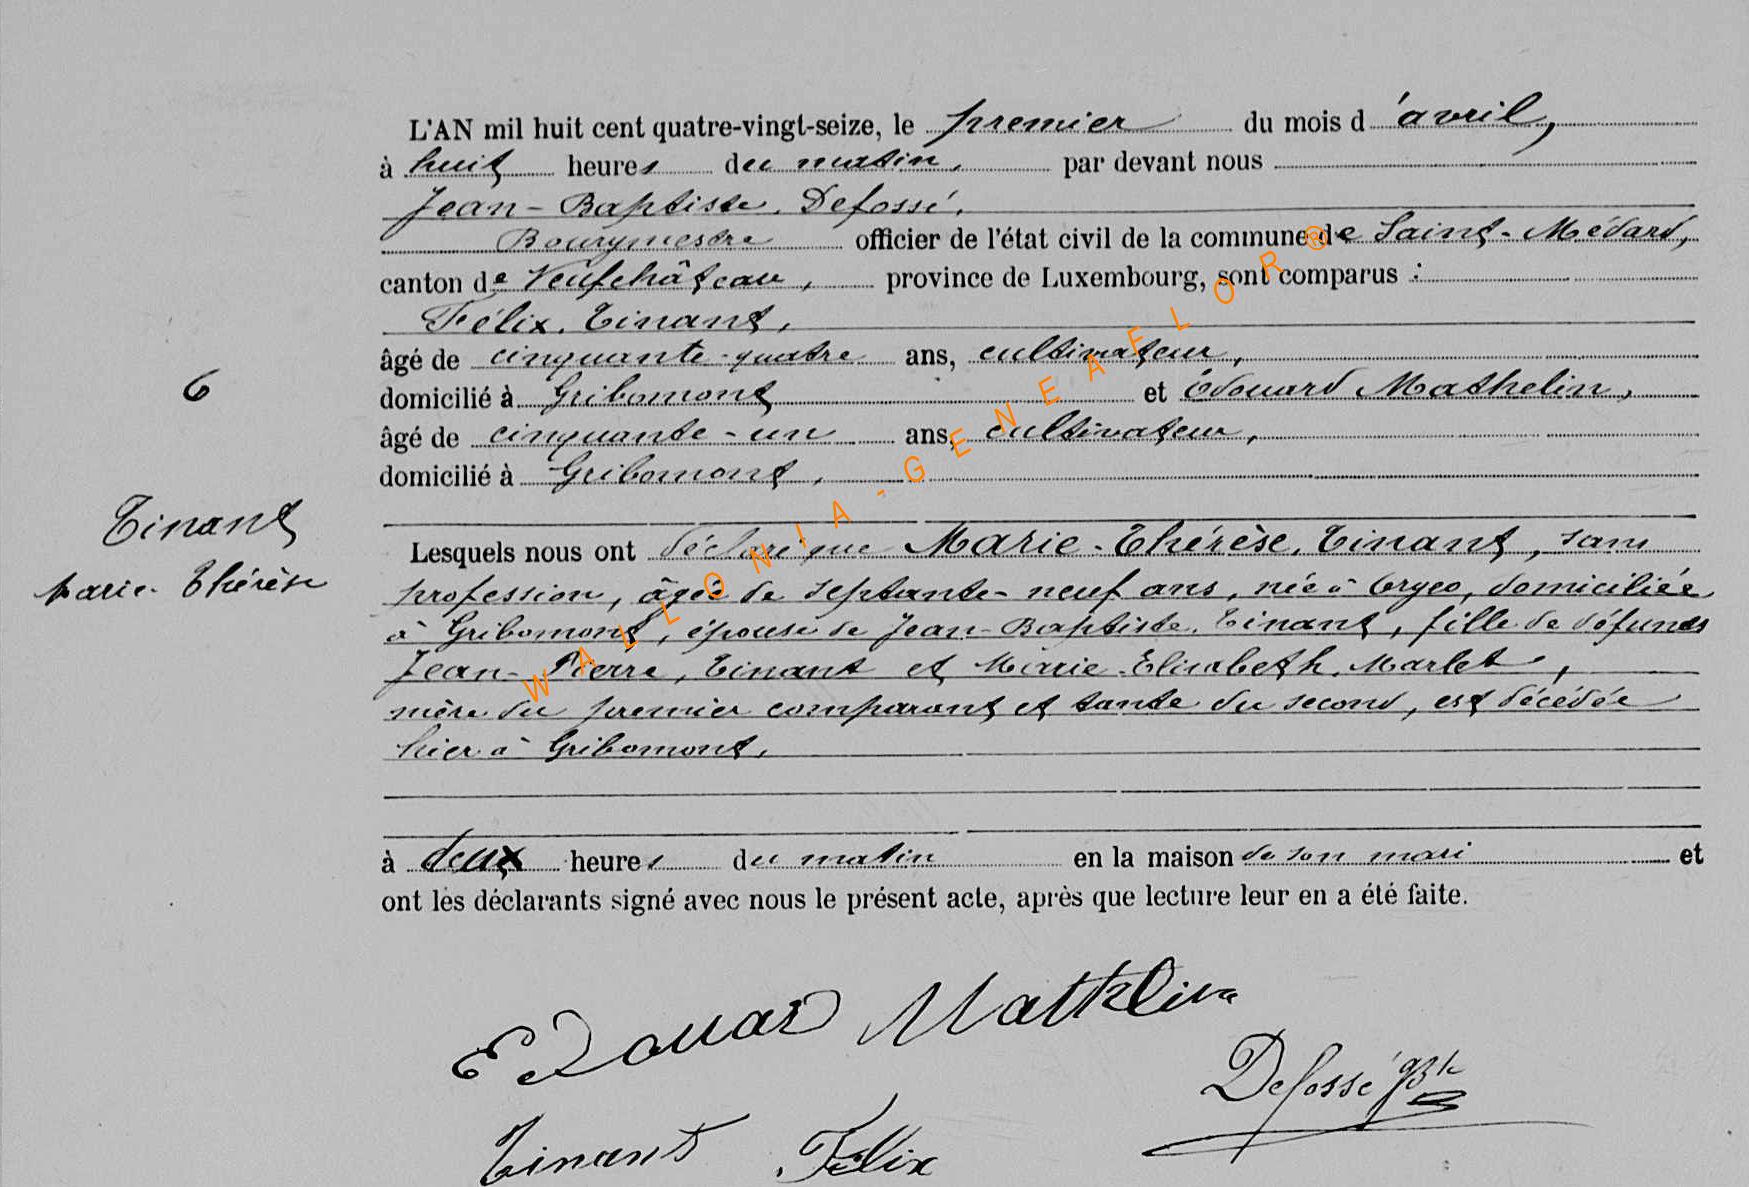 L'AN mil huit cent quatre-vingt-seize, le premier du mois d'avril,
à huit heures du matin, par devant nous
Jean-Baptiste Defossé,
Bourgmestre officier de l'état civil de la commune de Saint-Médard,
canton de Neufchâteau, province de Luxembourg, sont comparus :
Félix Tinant,
âgé de cinquante-quatre ans, cultivateur,
6
domicilié à Gribomont et Edouard Mathelin,
âgé de cinquante-un ans, cultivateur,
domicilié à Gribomont,
Tinant
Marie-Thérèse
Lesquels nous ont déclaré que Marie-Thérèse Tinant, sans
profession, âgée de septante-neuf ans, née à Orgeo, domiciliée
à Gribomont, épouse de Jean-Baptiste Tinant, fille de défunts
Jean-Pierre Tinant et Marie-Elisabeth Marlet,
mère du premier comparant et tante du second, est décédée
hier à Gribomont,
à deux heures du matin en la maison de son mari et
ont les déclarants signé avec nous le présent acte, après que lecture leur en a été faite.
Edouard Mathelin
Defossé JBte
Tinant Félix
WALLONIA-GENEAFLOR®